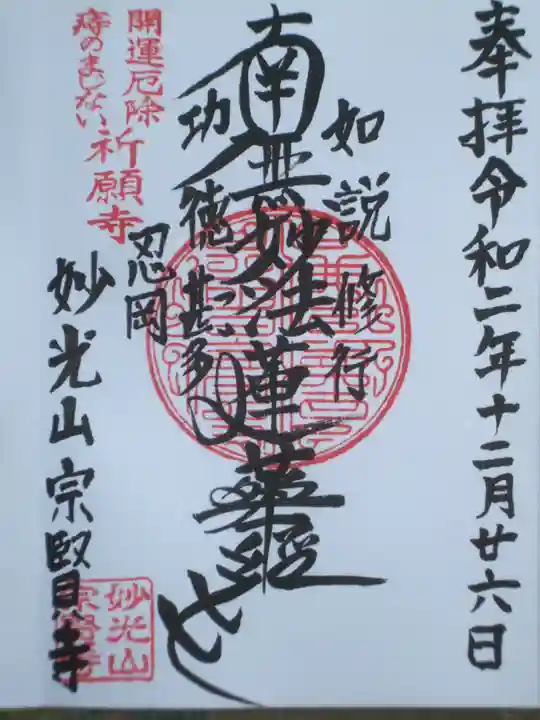 奉拝令和二年十二月廿六日
如説修行
南無妙法蓮華経
功徳甚多
開運厄除
痔のまじない
祈願寺
忍岡
妙光山宗賢寺
妙光山
宗賢寺